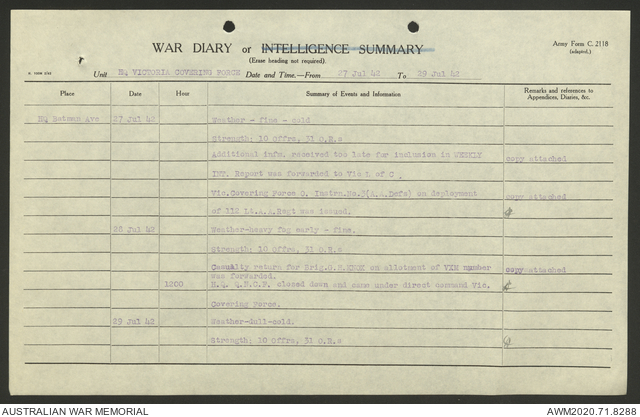 WAR DIARY or INTELLIGENCE SUMMARY
Army Form C. 2118
(adapted.)
(Erase heading not required).
Unit HQ VICTORIA COVERING FORCE Date and Time.—From 27 Jul 42 To 29 Jul 42
Place Date Hour Summary of Events and Information Remarks and references to Appendices, Diaries, &c.
HQ Batman Ave 27 Jul 42 Weather - fine - cold
Strength: 10 Offrs, 31 O.R.s
Additional infm. received too late for inclusion in WEEKLY copy attached
INT. Report was forwarded to Vic L of C.
Vic. Covering Force O. Instrn. No. 3 (A.A. Defs) on deployment copy attached
of 112 Lt. A.A. Regt was issued.
28 Jul 42 Weather-heavy fog early - fine.
Strength: 10 Offrs, 31 O.R.s
Casualty return for Brig. on allotment of VXH number copy attached
was forwarded.
1200 H.Q. closed down and came under direct command Vic.
Covering Force.
29 Jul 42 Weather-dull-cold.
Strength, 10 Offrs, 31 O.R.s
AUSTRALIAN WAR MEMORIAL
AWM2020.71.8288